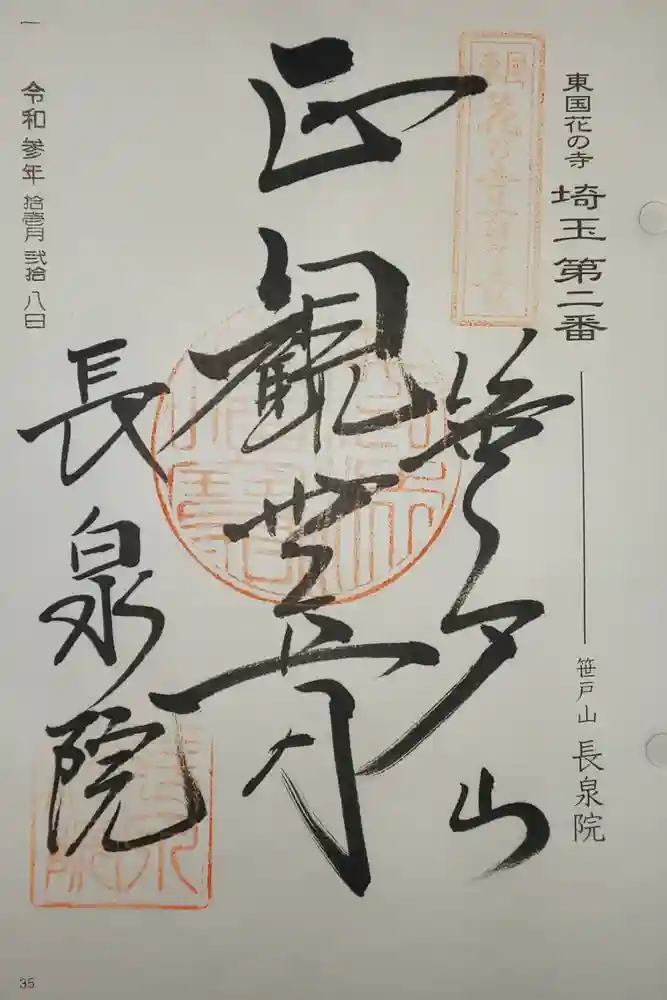 東国花の寺 埼玉第二番
笹戸山 長泉院
笹戸山
正観世音
長泉院
令和参年拾壱月弐拾八日
35